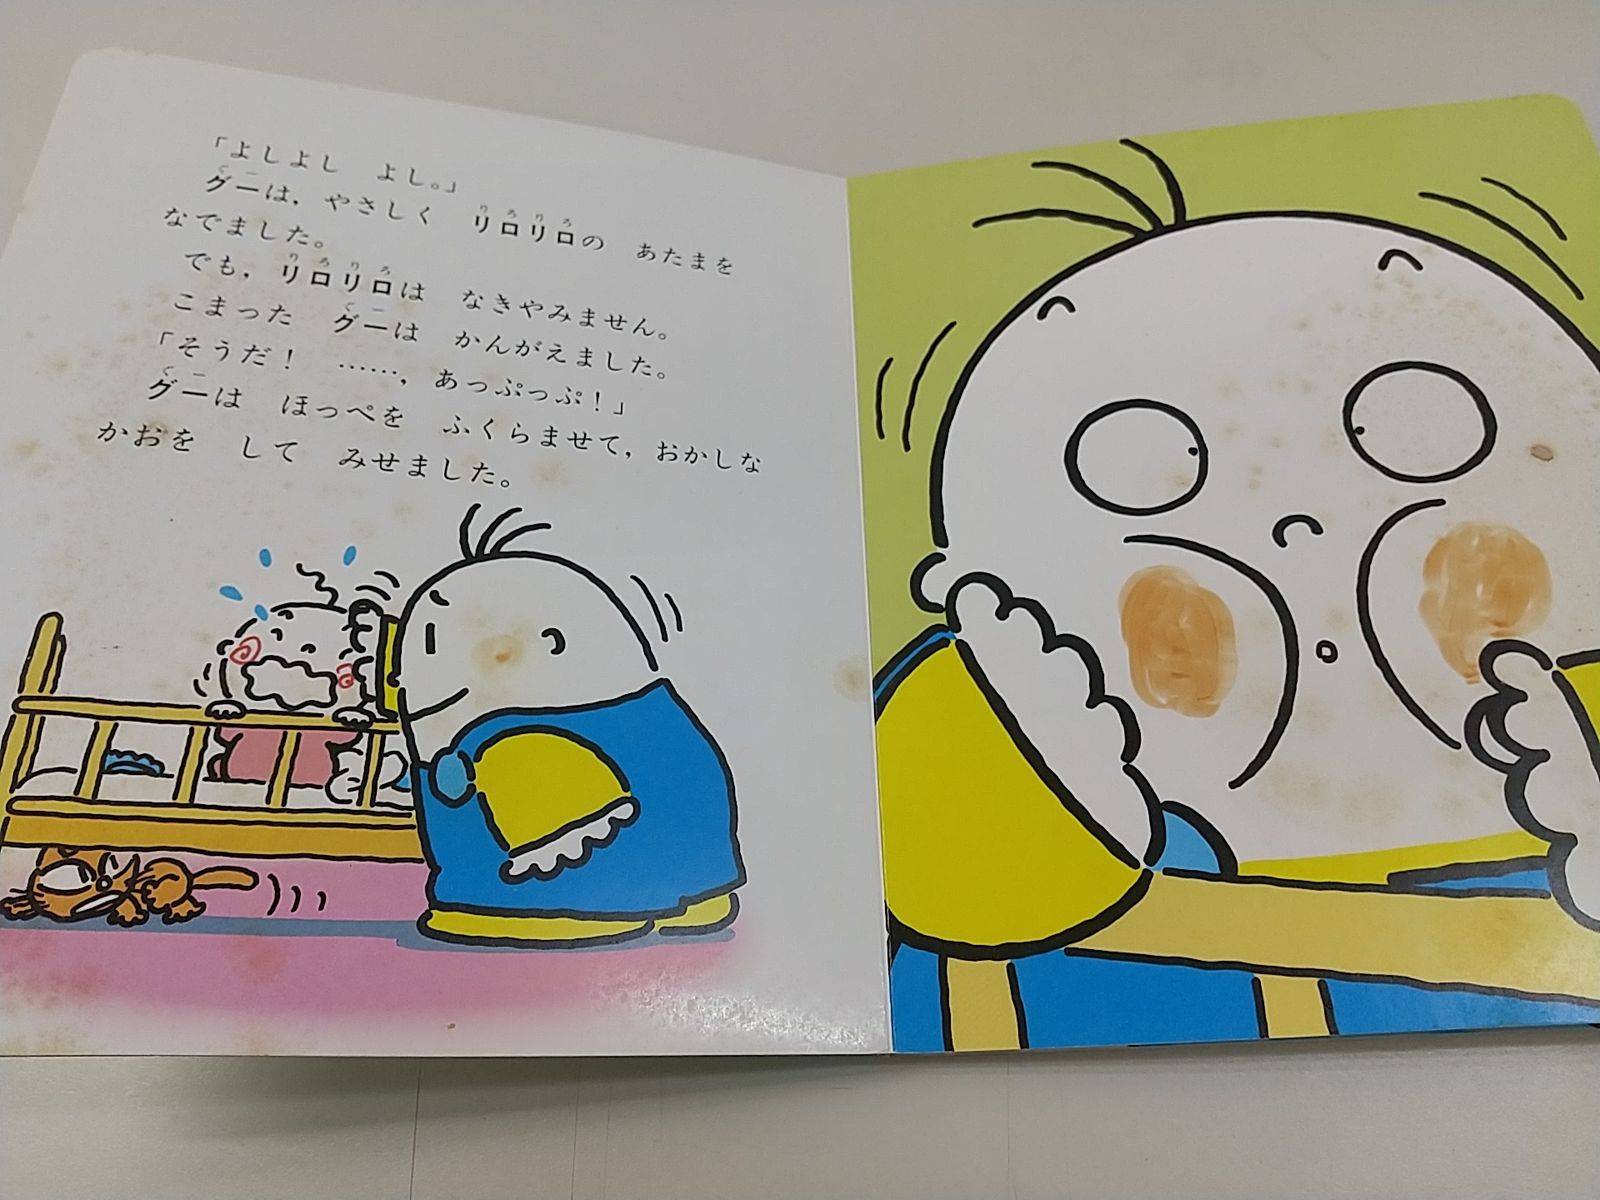 「よしよし　よし。」
グーは，やさしく　リロリロの　あたまを
なでました。
でも，リロリロは　なきやみません。
こまった　グーは　かんがえました。
「そうだ！　……，あっぷっぷ！」
グーは　ほっぺを　ふくらませて，おかしな
かおを　して　みせました。